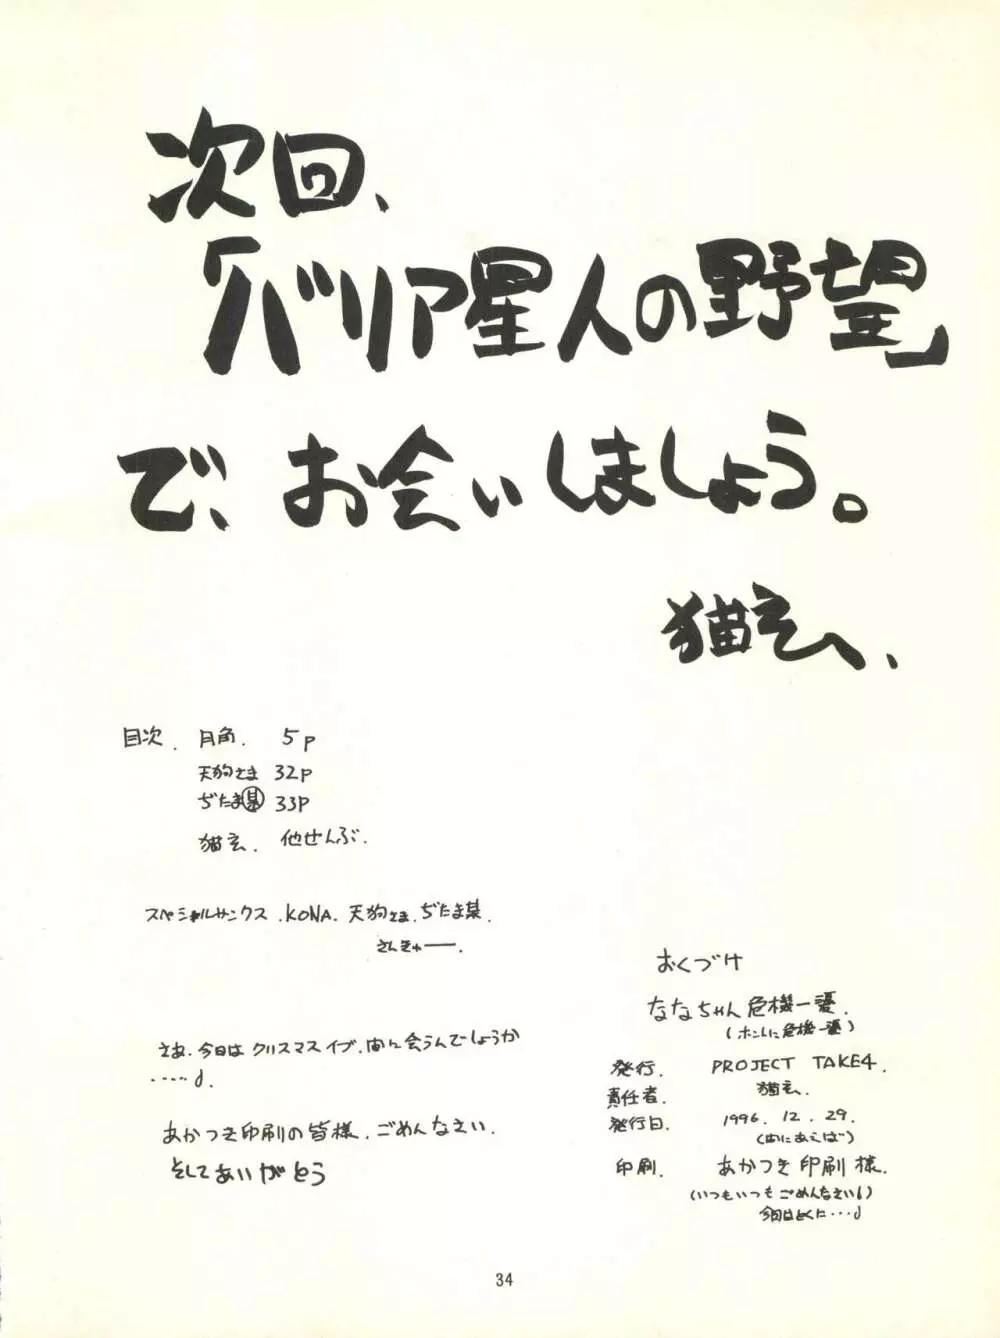 次回、
「バリア星人の野望」
で、お会いしましょう。
猫玄、
目次、 月角、 5p
天狗さま 32p
ぢたま某 33P
猫玄、 他せんぶ、
スペシャルサンクス、KONA、天狗さま、ぢたま某、
さんきゅ——、
さあ、今日はクリスマスイブ、間に会うんでしょうか
・・・・・♪
あかつき印刷の皆様、ごめんなさい、
そしてありがとう
おくづけ
ななちゃん危機一髪、
(ホントに危機一髪)
発行、 PROJECT TAKE4、
責任者、 猫玄、
発行日、 1996、12、29、
(間にあえば)
印刷、 あかつき印刷様、
(いつもいつもごめんなさい♪)
今回はとくに・・・♪
34